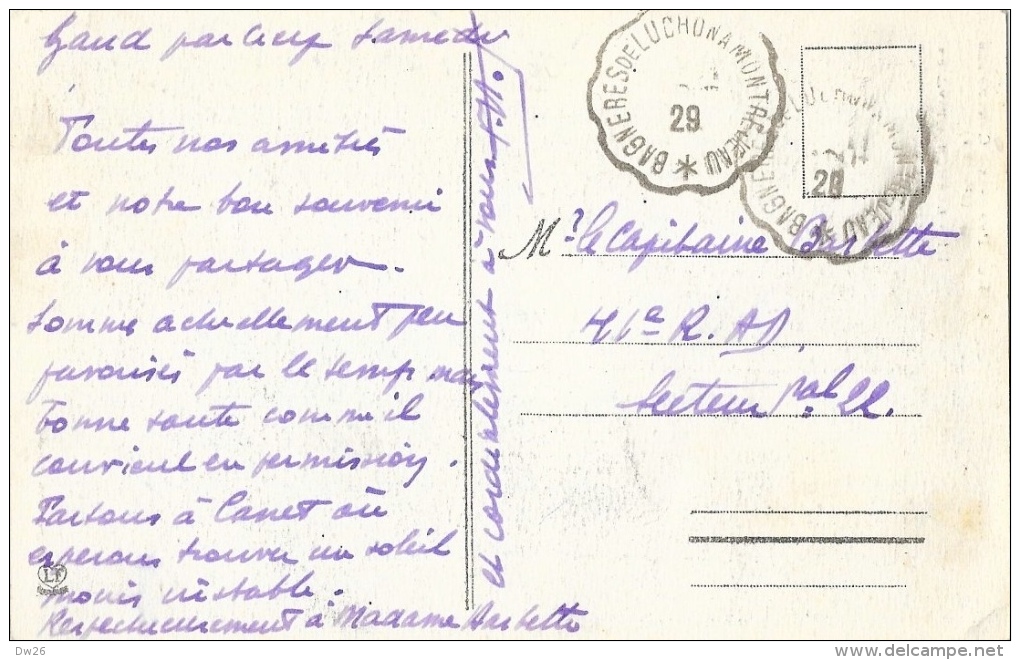 Toutes nos amitiés
et notre bon souvenir
à vous partager.
Somme actuellement peu
favorisés par le temps mais
bonne santé comme il
convient en permission.
Partons à Canet où
esperons trouver un soleil
moins instable.
Respectueusement à Madame Barbette
et cordialement à vous
BAGNERES DE LUCHON A MONTREJEAU *
29
BAGNERES DE LUCHON A MONTREJEAU *
Mr. le Capitaine Barbette
41e R. AD.
Secteur Pal 22.
LF
Dw26
delcampe.net